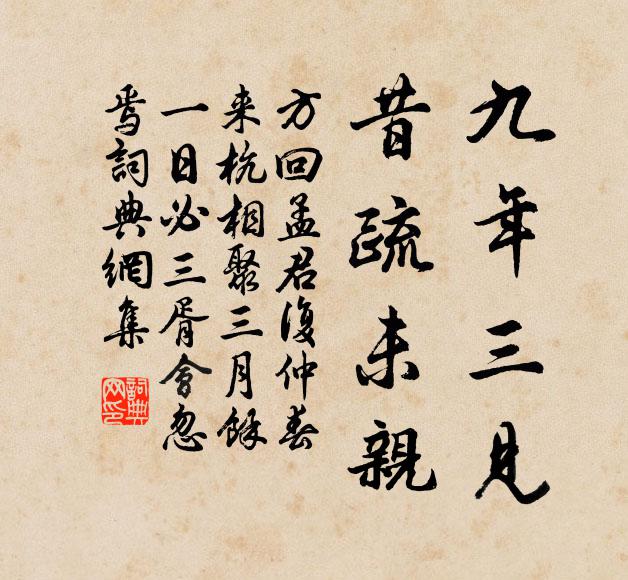 九年三見
昔疏未親
方回孟君復仲春
来杭相聚三月餘
一日必三胥會忽
焉詞典網集
詞典
网印